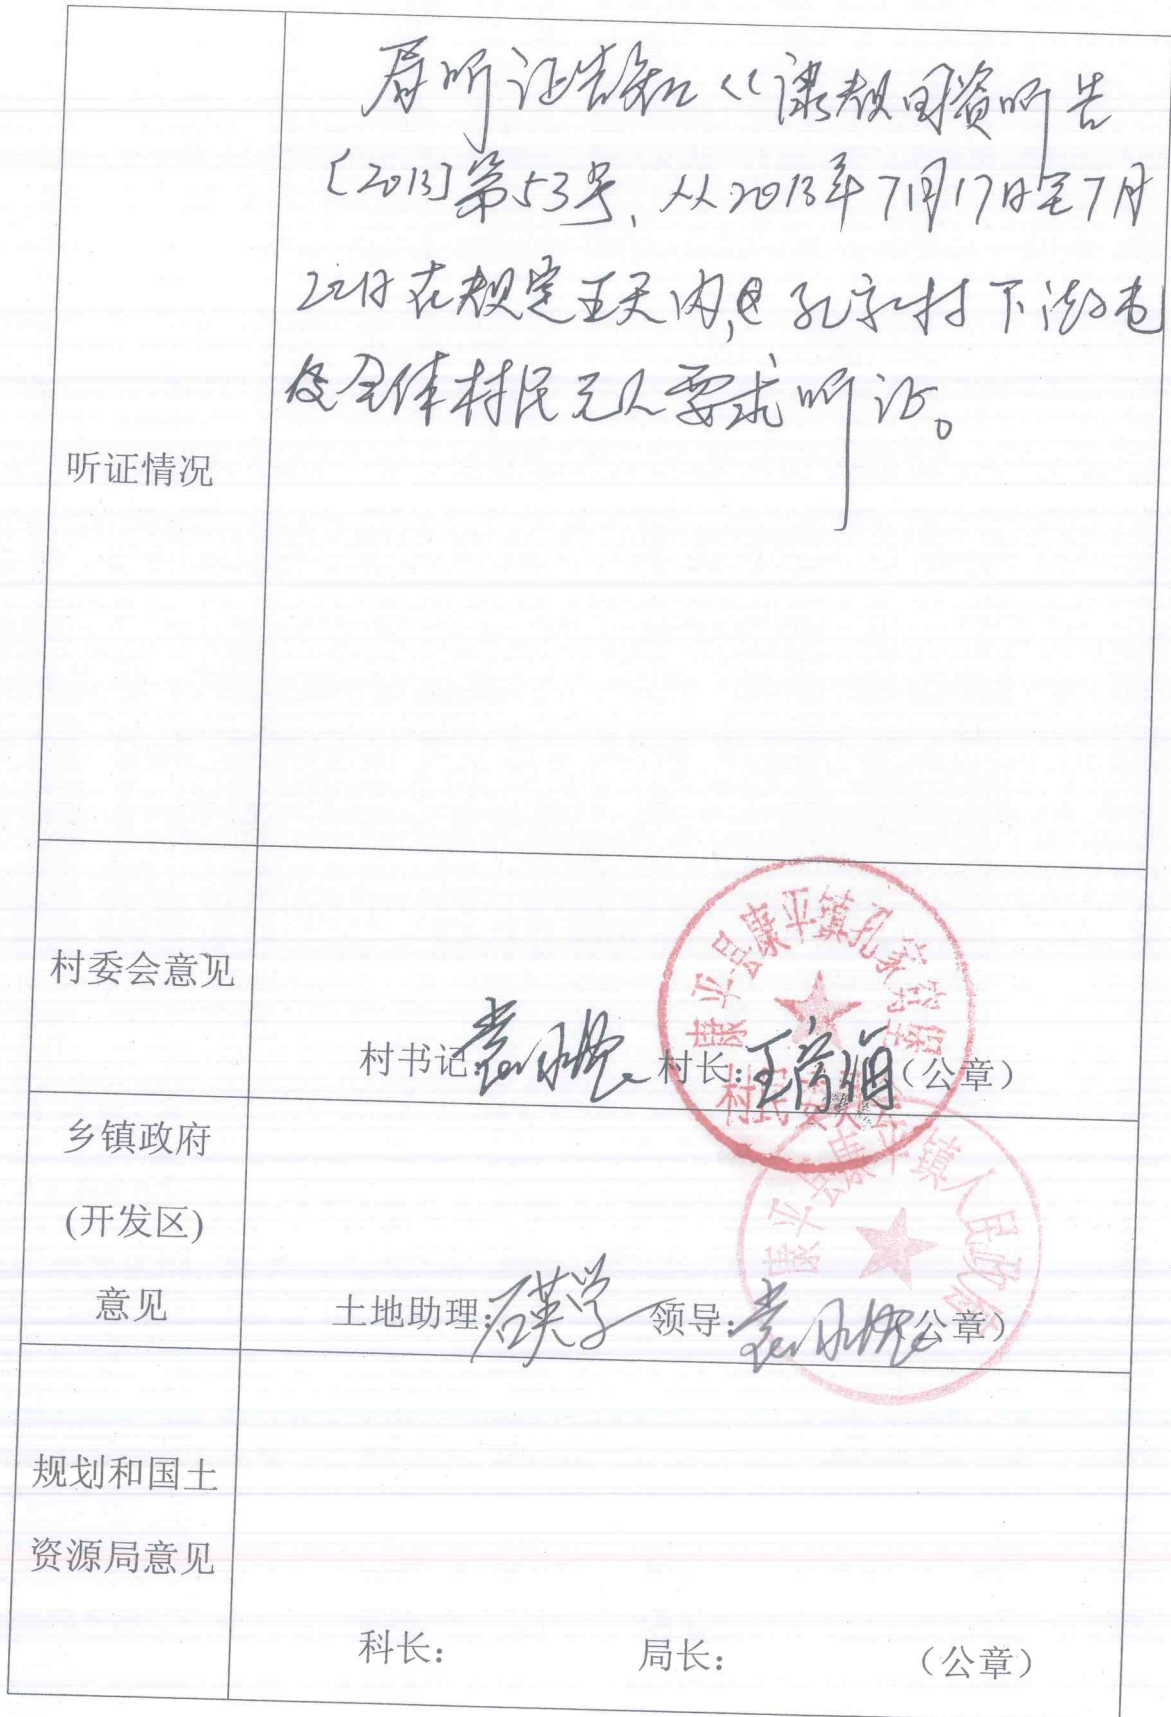 听证告知《康规国资听告
〔2013〕第53号,从2013年7月17日至7月
22日在规定五天内,孔家村下
全体村民无人要求听证。
听证情况
村委会意见
康平县康平镇孔家窝堡
村民委员会
村书记 村长: (公章)
乡镇政府
(开发区)
意见
康平县康平镇人民政府
土地助理: 石英学 领导: (公章)
规划和国土
资源局意见
科长: 局长: (公章)